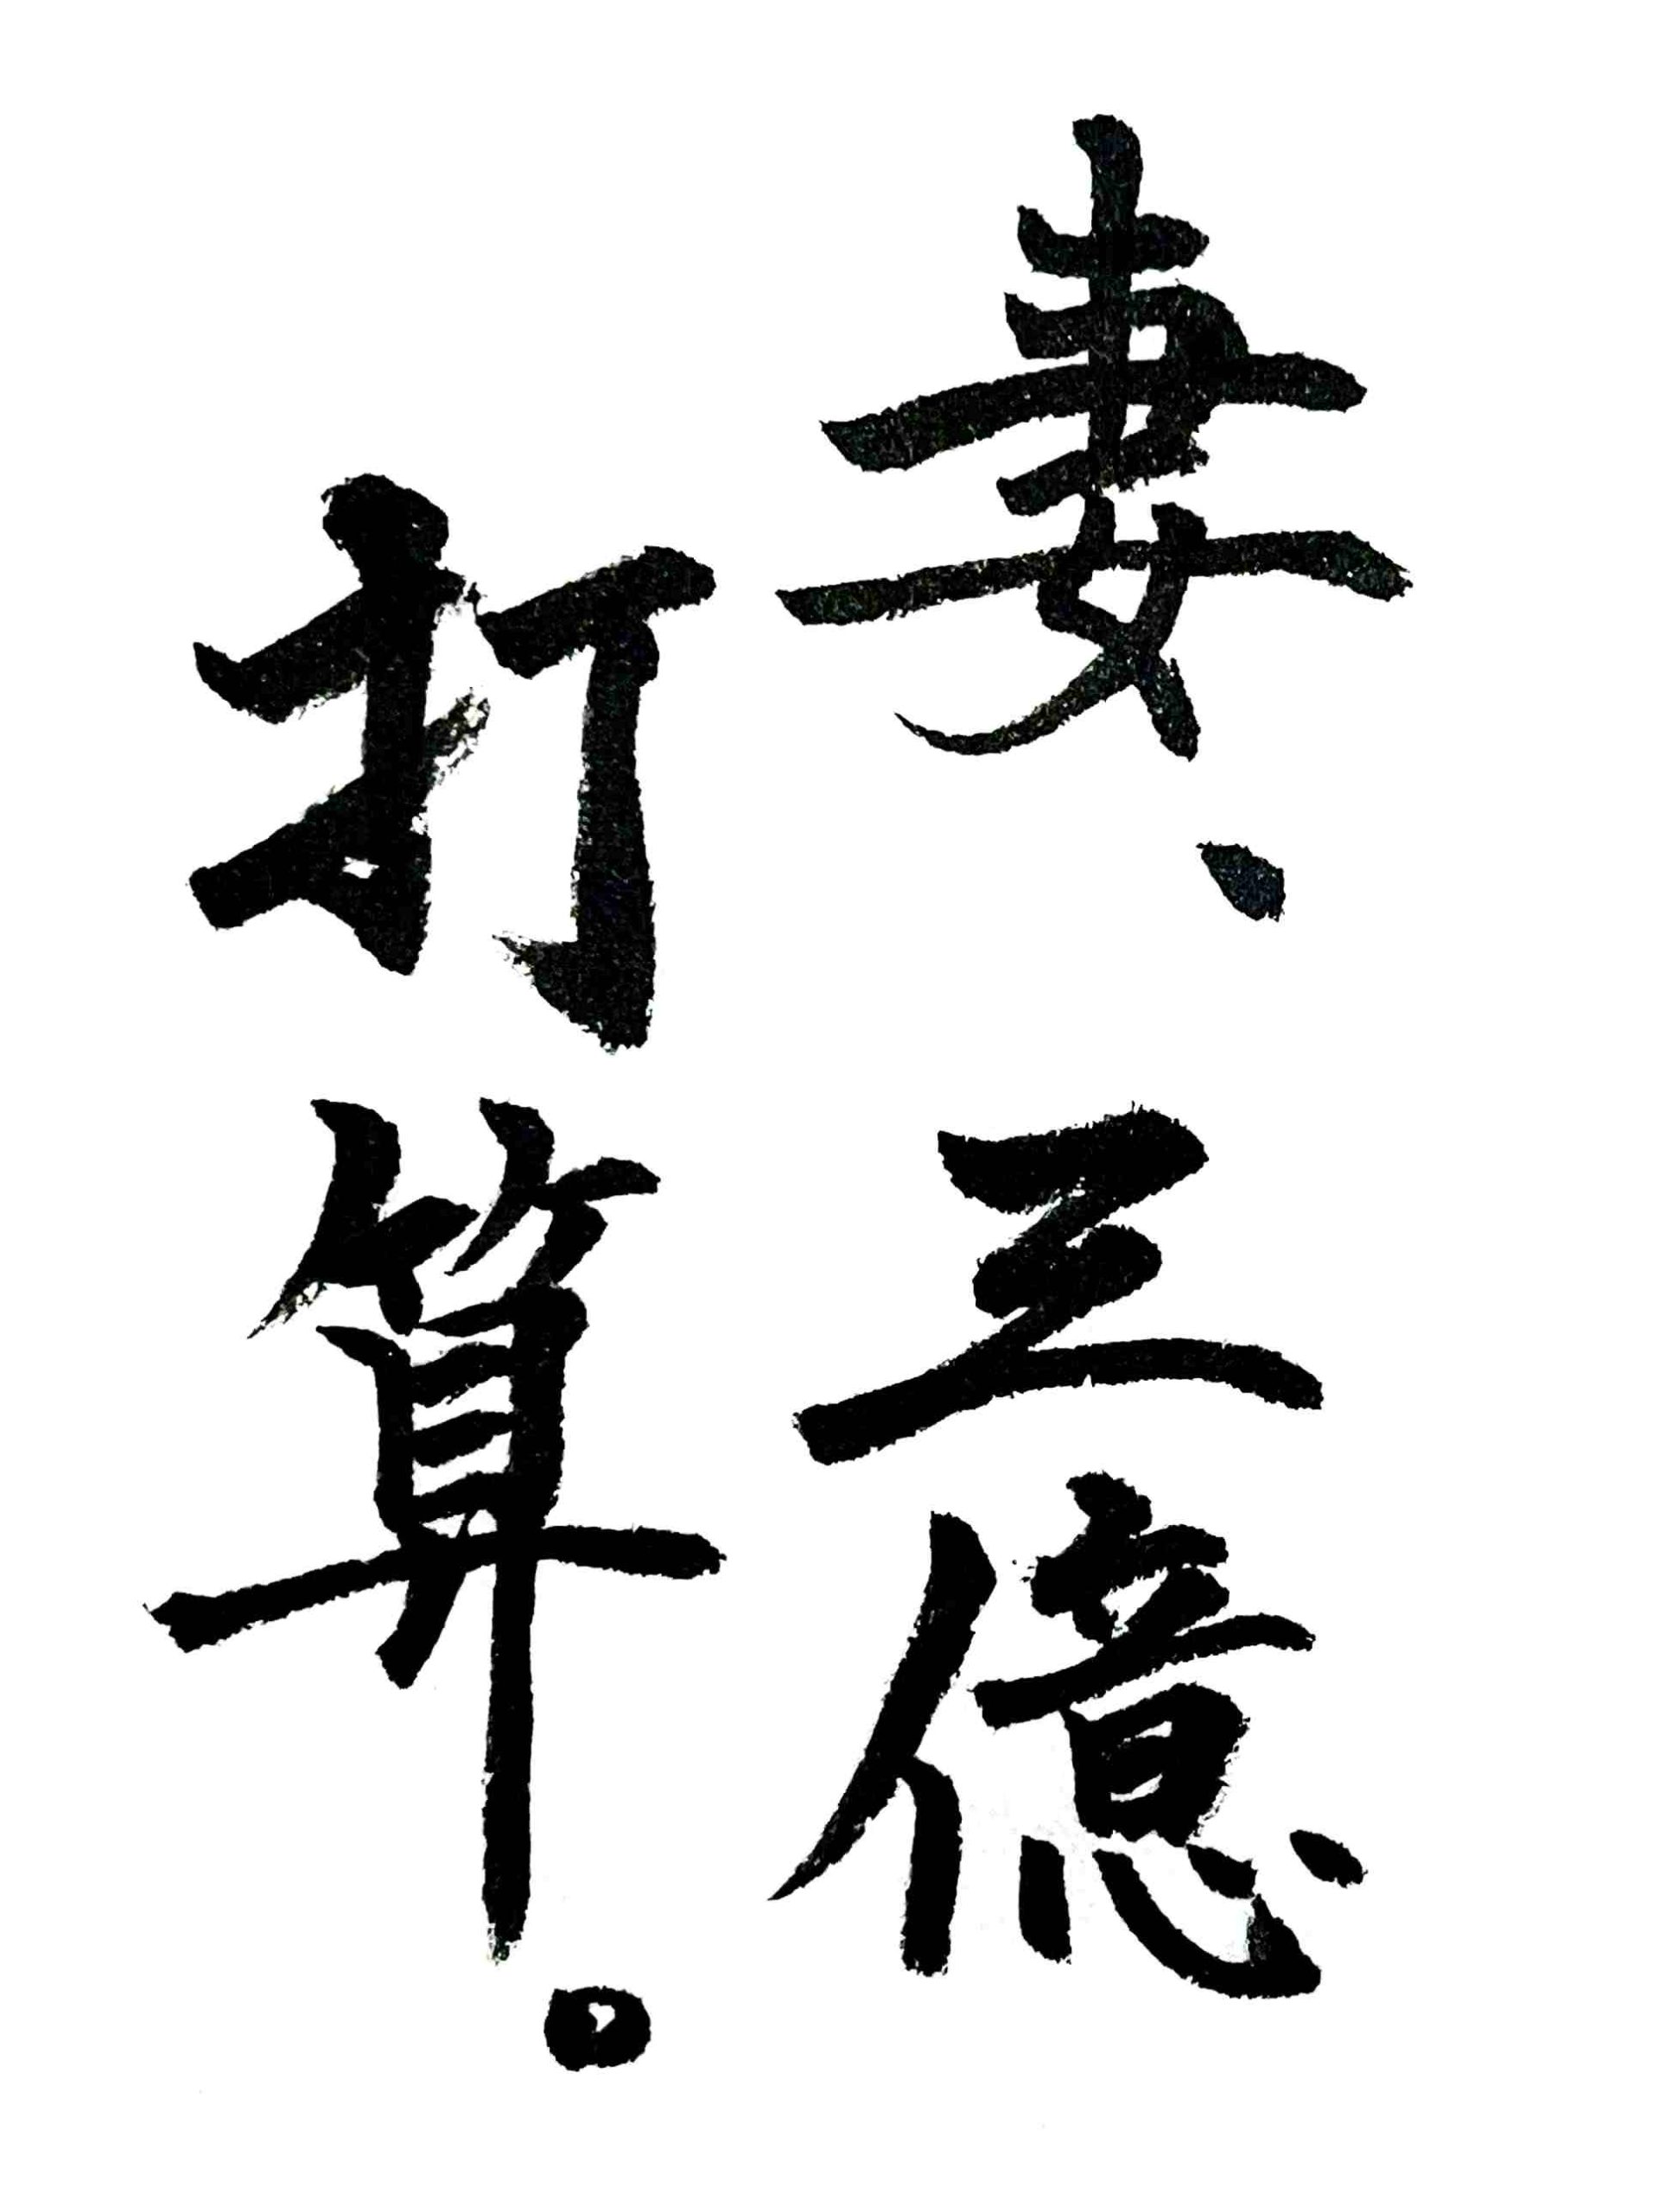 妻、三億
打算。